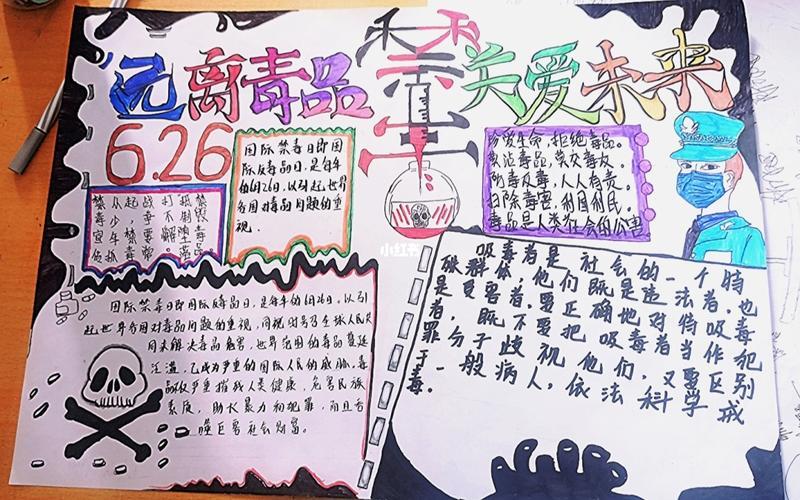 远离毒品
禁毒
关爱未来
6.26
国际禁毒日即国
际反毒品日,是每年
的6月26日,以引起世界
各国对毒品问题的重
视.
珍爱生命,拒绝毒品。
防毒反毒,人人有责。
扫除毒害,利国利民。
毒品是人类社会的公害
小红书
国际禁毒日即国际反毒品日,是每年的6月26日,以引
起世界各国对毒品问题的重视,同时对号召全球人民共
同来解决毒品危害,世界范围的毒品蔓延
泛滥,已成为严重的国际人民的威胁,毒
品仅严重摧残人类健康,危害民族
素质,助长暴力和犯罪,而且吞
噬巨害社会财富。
吸毒者是社会的一个特
殊群体,他们既是违法者,也
是受害者,要正确地对待吸毒
者,既不要把吸毒者当作犯
罪分子歧视他们,又要区别
于一般病人,依法科学戒
毒.